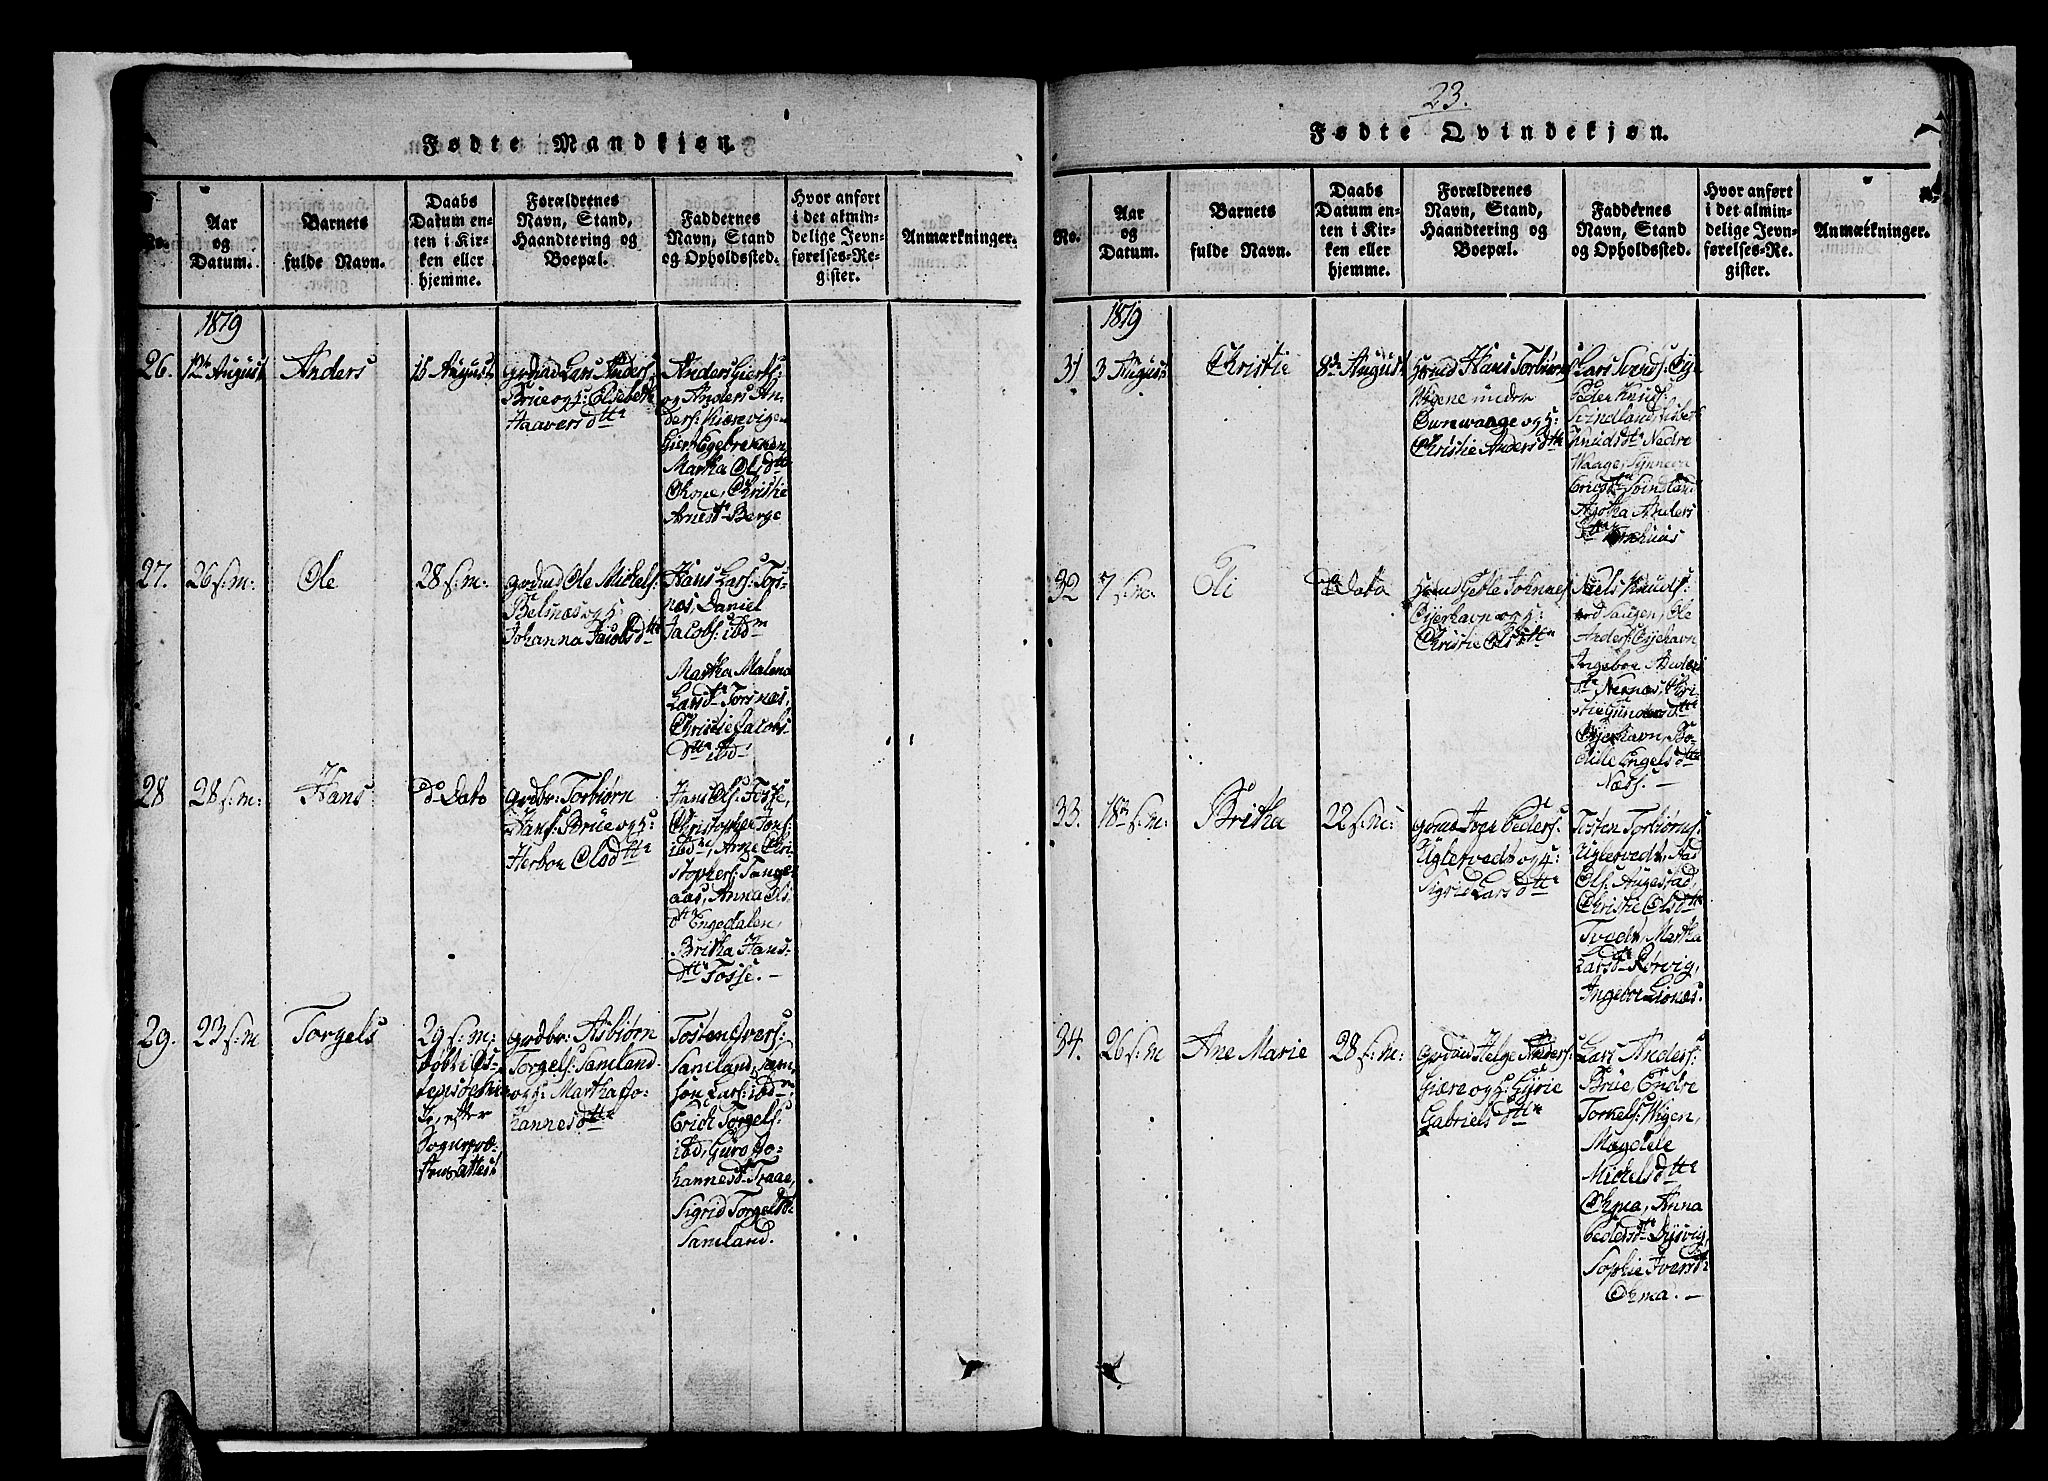 Fødte Mandkjøn.
No.
Aar
og
Datum.
Barnets
fulde Navn.
Daabs
Datum en-
ten i Kir-
ken eller
hjemme.
Forældrenes
Navn, Stand,
Haandtering og
Boepæl.
Faddernes
Navn, Stand
og Opholdssted.
Hvor anført
i det almin-
delige Jevn-
førelses-Re-
gister.
Anmærkninger.
1819
26.
12te August
Anders
15 August
Grdmd Lars Anders:
Brue og h: Elsebet
Haaversdttr
Anders Gierts:
og Anders An-
ders: Kierevigen
Giert Egebrekken
Martha Olsdttr
Okne, Christie
Arnesdtr Berge
27.
26 s: m:
Ole
28 s: m:
Grdmd Ole Mickels:
Belnæs og h:
Johanna Jacobsdttr
Hans Lars: Tors-
næs, Daniel
Jacobs: ibdm
Martha Malena
Larsdtr Torsnæs,
Christie Jacobs-
dttr ibd:
28
28 s: m:
Hans
do Dato
Grdbr: Torbiørn
Hans: Brue og h:
Herbor Olsdttr
Hans Ols: Tosse,
Christopher Jons:
ibdm, Arne Chri-
stophers: Tange-
aas, Anna Ols-
dtr Engedalen,
Britha Hans-
dttr Tosse. —
29.
23 s: m
Torgels
29 s: m:
døbt i Os-
efter
Sognepræ-
stens
Grdbr: Asbiørn
Torgels: Samland
og h: Martha Jo-
hannesdttr
Tosten Ivers:
Samland, Sam-
son Lars: ibdm,
Erich Torgels:
ibd, Guro Jo-
hannesdtr Traae,
Sigrid Torgelsdtr
Samland.
23.
Fødte Qvindekjøn.
No.
Aar
og
Datum.
Barnets
fulde Navn.
Daabs
Datum en-
ten i Kir-
ken eller
hjemme.
Forældrenes
Navn, Stand,
Haandtering og
Boepæl.
Faddernes
Navn, Stand
og Opholdssted.
Hvor anført
i det almin-
delige Jevn-
førelses-Re-
gister.
Anmærkninger.
1819
31
3 August
Christie
8de August
Hmd Hans Torbiørns
under
waage og h:
Christie Andersdttr
Lars Svends: Øye
Peder Knuds:
Svindland, Lisbet
Knudsdtr Nedre
Waage, Synneva
Ericsdtr Svindland
Agotha Anders
dtr
32
7 s: m:
Eli
do Dato
Johnnes
Øyerhavn og h:
Christie Olsdttr
Niels Knuds:
Ole
Anders: Øyerhavn
Ingebor Anders
dtr Nernæs, Chri-
stie Gundersdttr
Øyerhavn, Bo-
dilde Engelsdttr
Næss. —
33.
18de s: m:
Britha
22 s: m:
Grmd Iver Peders:
Uglervedt og h:
Sigrid Larsdttr
Tosten Torbiørns:
Uglervedt, Aad
Ols: Augestad,
Christie Olsdttr
Tvedt, Martha
Larsdtr Rørvig,
Ingebor Lionæs.
34.
26 s: m
Ane Marie
28 s: m:
Grdmd Helge Anders:
Giære og h: Gyrie
Gabrielsdttr
Lars Anders:
Brue, Endre
Torkels: Wigen,
Magdele
Mickelsdttr
Okma, Anna
Pedersdtr Dysvig,
Sophie Iversdtr
Okma. —